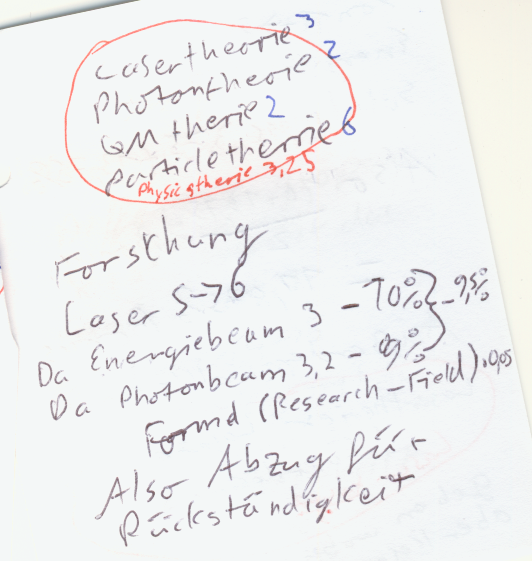 Lasertheorie 3
Photontherie 2
QM therie 2
particletherrie 6
Physicstherie 3,25
Forschung
Laser 5->6
Da Energiebeam 3 - 10%
Da Photonbeam 3,2 - 9%
- 9,5%
(Research-Field).0,05
Also Abzug für
Rückständigkeit